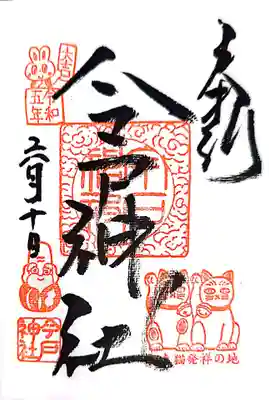 奉拝
今戸神社
六月十日
大吉
令和
五年
招き猫発祥の地
今戸
神社